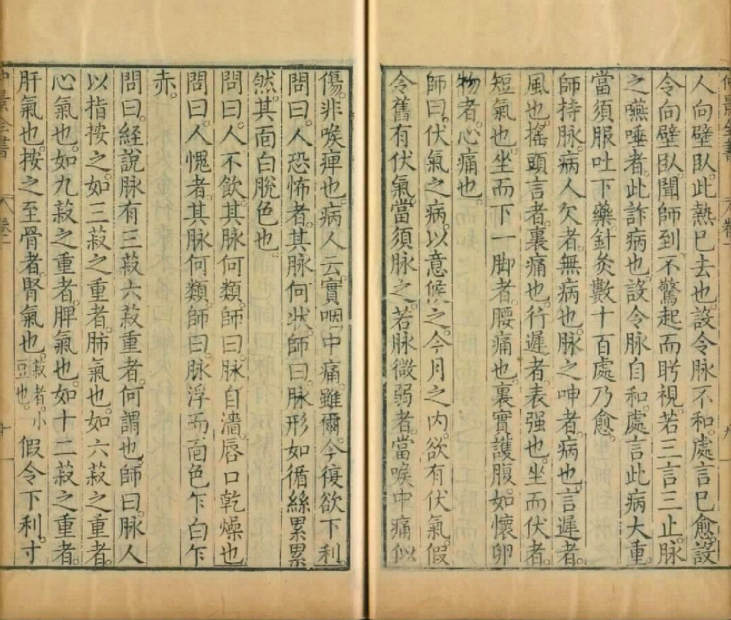 人向壁臥此熱已去也設令脉不和處言已愈設
令向壁臥聞師到不驚起而眄視若三言三止脉
之嚥唾者此詐病也設令脉自和處言此病大重
當須服吐下藥針灸數十百處乃愈
師持脉病人欠者無病也脉之呻者病也言遲者
風也搖頭言者裏痛也行遲者表强也坐而伏者
短氣也坐而下一脚者腰痛也裏實護腹如懷卵
物者心痛也
師曰伏氣之病以意候之今月之內欲有伏氣假
令舊有伏氣當須脉之若脉微弱者當喉中痛似
傷非喉痺也病人云實咽中痛雖爾今復欲下利
問曰人恐怖者其脉何狀師曰脉形如循絲累累
然其面白脫色也
問曰人不飲其脉何類師曰脉自濇唇口乾燥也
問曰人愧者其脉何類師曰脉浮而面色乍白乍
赤
問曰經說脉有三菽六菽重者何謂也師曰脉人
以指按之如三菽之重者肺氣也如六菽之重者
心氣也如九菽之重者脾氣也如十二菽之重者
肝氣也按之至骨者腎氣也菽者小豆也假令下利寸
仲景全書 卷一 十